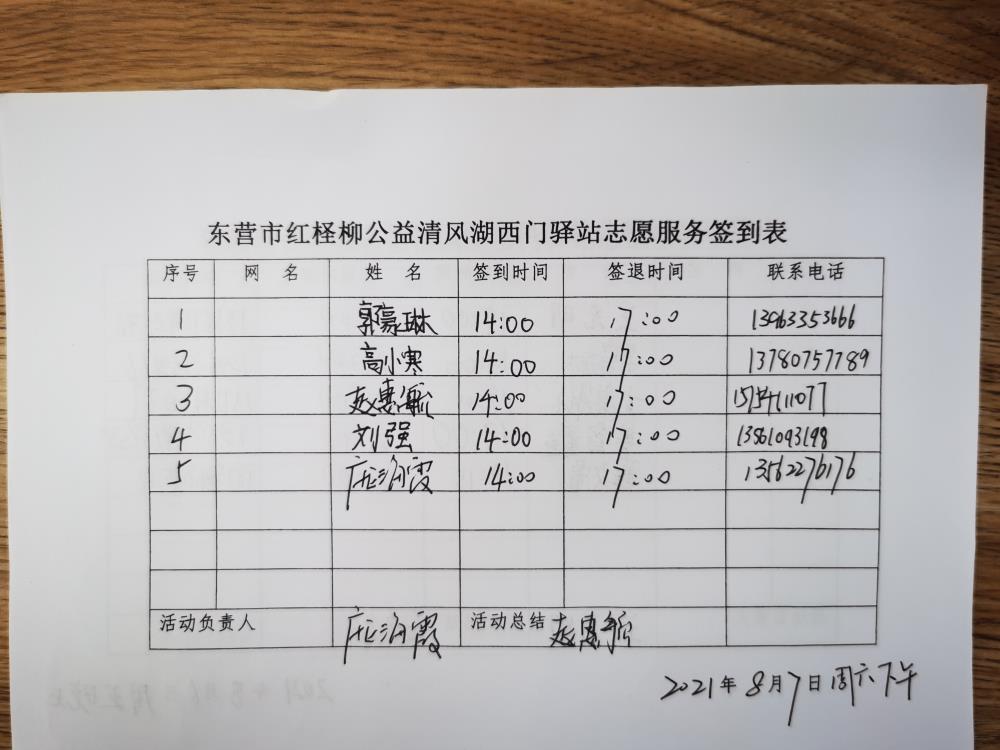 东营市红柽柳公益清风湖西门驿站志愿服务签到表
序号 网 名 姓 名 签到时间 签退时间 联系电话
1 郭豪琳 14:00 17:00 13963353666
2 高小寒 14:00 17:00 13780757789
3 赵惠毓 14:00 17:00
4 刘强 14:00 17:00 13561093198
5 庄海霞 14:00 17:00 13562276176
活动负责人 庄海霞 活动总结 赵惠毓
2021年8月7日周六下午